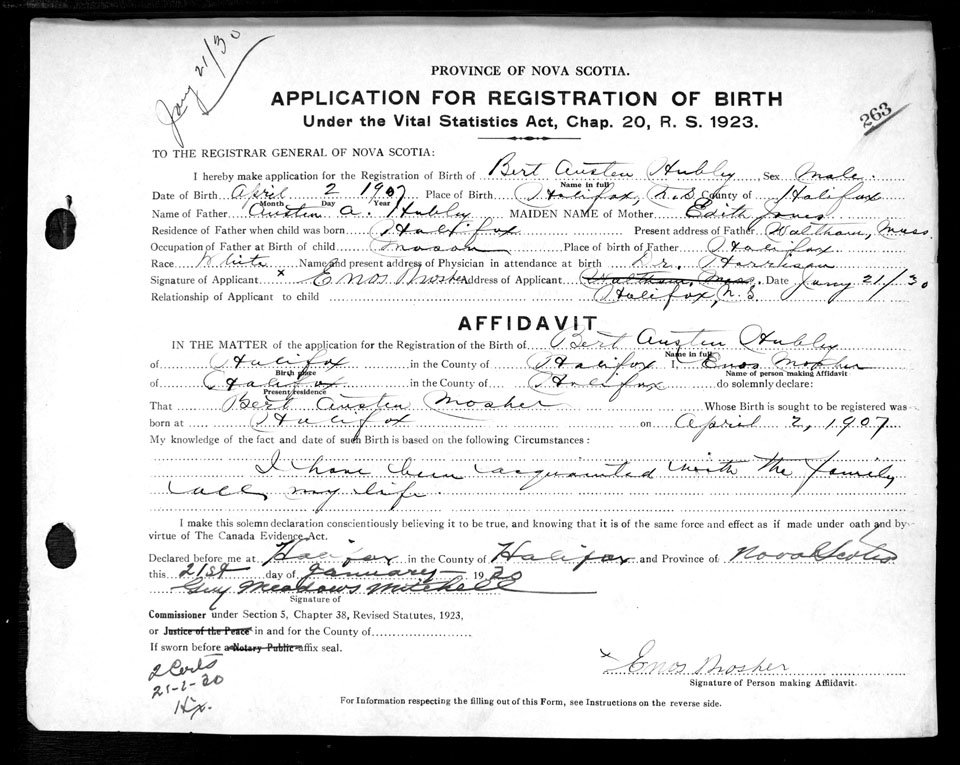 Jany 21/30
PROVINCE OF NOVA SCOTIA.
263
APPLICATION FOR REGISTRATION OF BIRTH
Under the Vital Statistics Act, Chap. 20, R. S. 1923.
TO THE REGISTRAR GENERAL OF NOVA SCOTIA:
I hereby make application for Registration of Birth of Bert Austen Hubley Sex Male.
Name in full
Date of Birth April 2 1907 Place of Birth Halifax, N.S County of Halifax
Month Day Year
Name of Father Austen A. Hubley MAIDEN NAME of Mother Edith Jones
Residence of Father when child was born Halifax Present address of Father Waltham, Mass.
Occupation of Father at Birth of child Mason Place of birth of Father Halifax
Race White Name and present address of Physician in attendance at birth Dr. Harrison
Signature of Applicant x Enos Mosher Address of Applicant Waltham, Mass. Date Jany 21/30
Relationship of Applicant to child Halifax, N.S.
AFFIDAVIT
IN THE MATTER of the application for the Registration of the Birth of Bert Austen Hubley
Name in full
of Halifax in the County of Halifax I, Enos Mosher
Birth place Name of person making Affidavit
of Halifax in the County of Halifax do solemnly declare:
Present residence
That Bert Austen Mosher Whose Birth is sought to be registered was
born at Halifax on April 2, 1907
My knowledge of the fact and date of such Birth is based on the following Circumstances:
I have been acquainted with the family
all my life.
I make this solemn declaration conscientiously believing it to be true, and knowing that it is of the same force and effect as if made under oath and by
virtue of The Canada Evidence Act.
Declared before me at Halifax in the County of Halifax and Province of Nova Scotia
this 21st day of January 1930
Guy Meadows Mitchell
Signature of
Commissioner under Section 5, Chapter 38, Revised Statutes, 1923,
or Justice of the Peace in and for the County of
If sworn before a Notary Public affix seal.
2 Certs
21-1-30
Hx.
x Enos Mosher
Signature of Person making Affidavit.
For Information respecting the filling out of this Form, see Instructions on the reverse side.